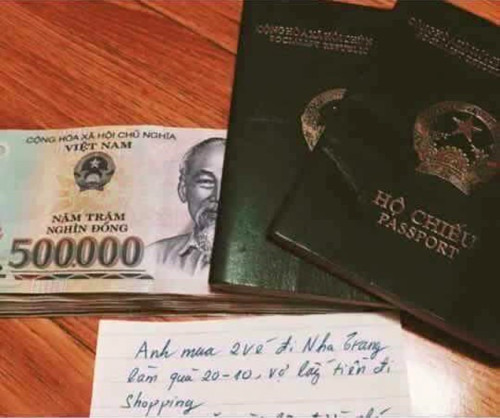 CỘNG HÒA XÃ HỘI CHỦ NGHĨA
VIỆT NAM
NĂM TRĂM
NGHÌN ĐỒNG
500000
CỘNG HÒA XÃ HỘI CHỦ NGHĨA
SOCIALIST REPUBLIC
CỘNG HÒA XÃ HỘI CHỦ
SOCIALIST REPUBLIC
HỘ CHIẾU
PASSPORT
Anh mua 2 vé đi Nha Trang
làm quà 20-10, vợ lấy tiền đi
Shopping